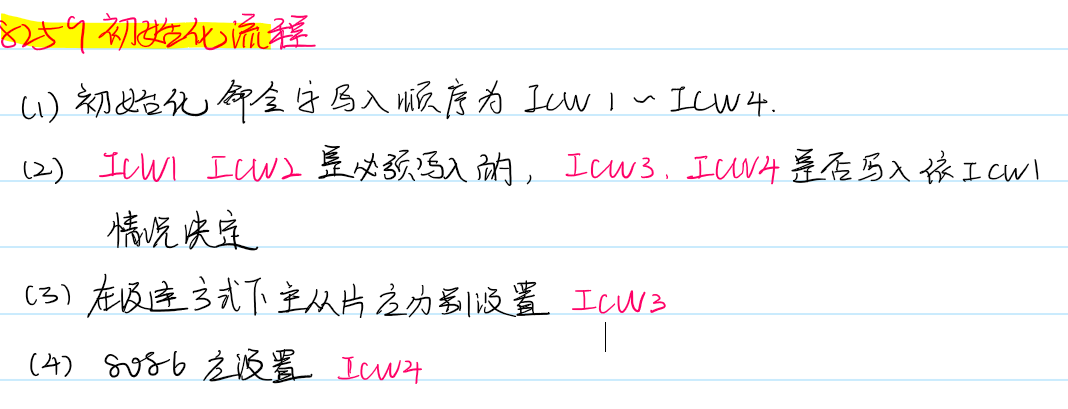 8259初始化流程
(1) 初始化命令字写入顺序为 ICW1~ICW4.
(2) ICW1 ICW2 是必须写入的, ICW3、ICW4是否写入依ICW1
情况决定
(3) 在级连方式下主从片应分别设置 ICW3
(4) 8086 应设置 ICW4